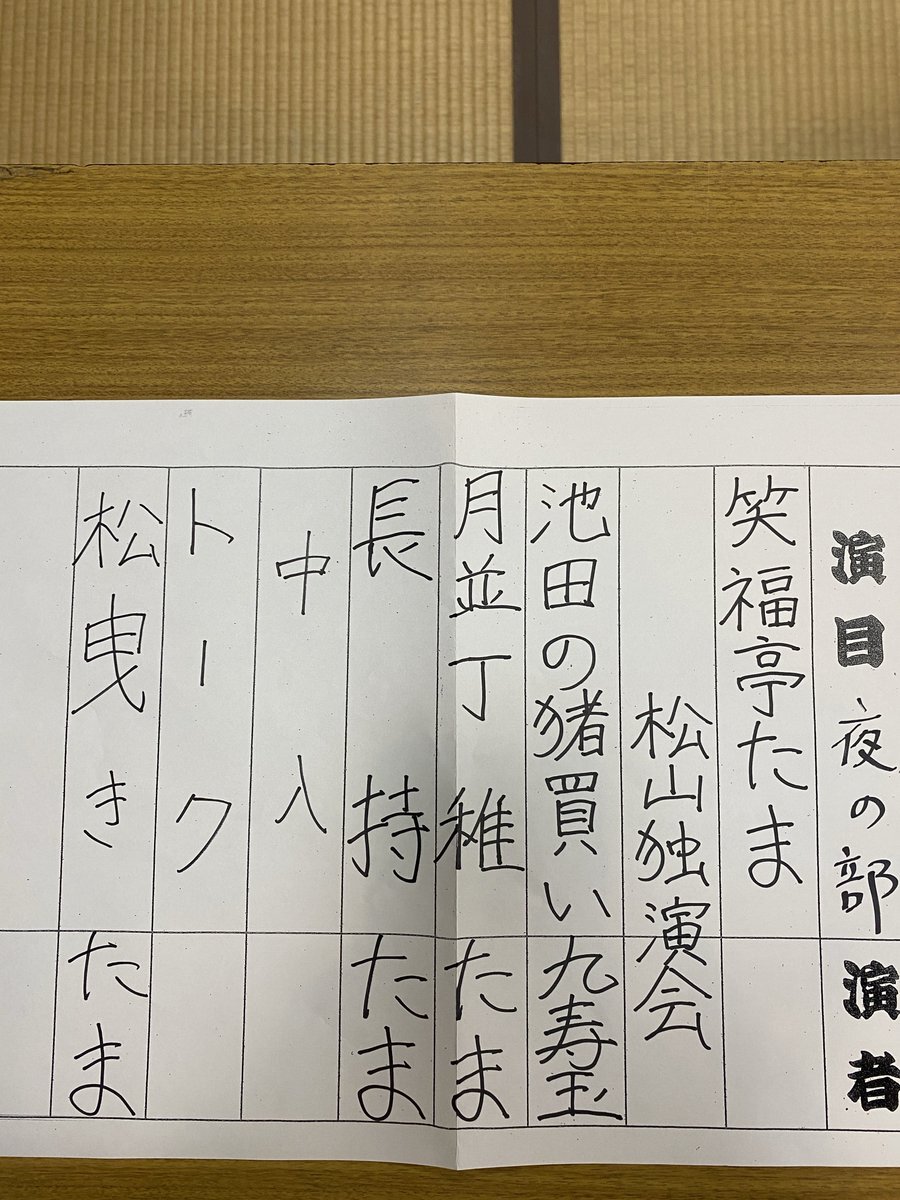 演目 夜の部 演者
笑福亭たま
松山独演会
池田の猪買い 九寿玉
月並丁稚 たま
長持 たま
中入
トーク
松曳き たま